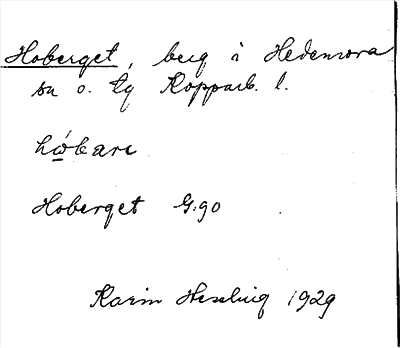 Hoberget, berg i Hedemora
sn o. lg Kopparb. l.
hώbare
Hoberget G:90
Karin Hessling 1929